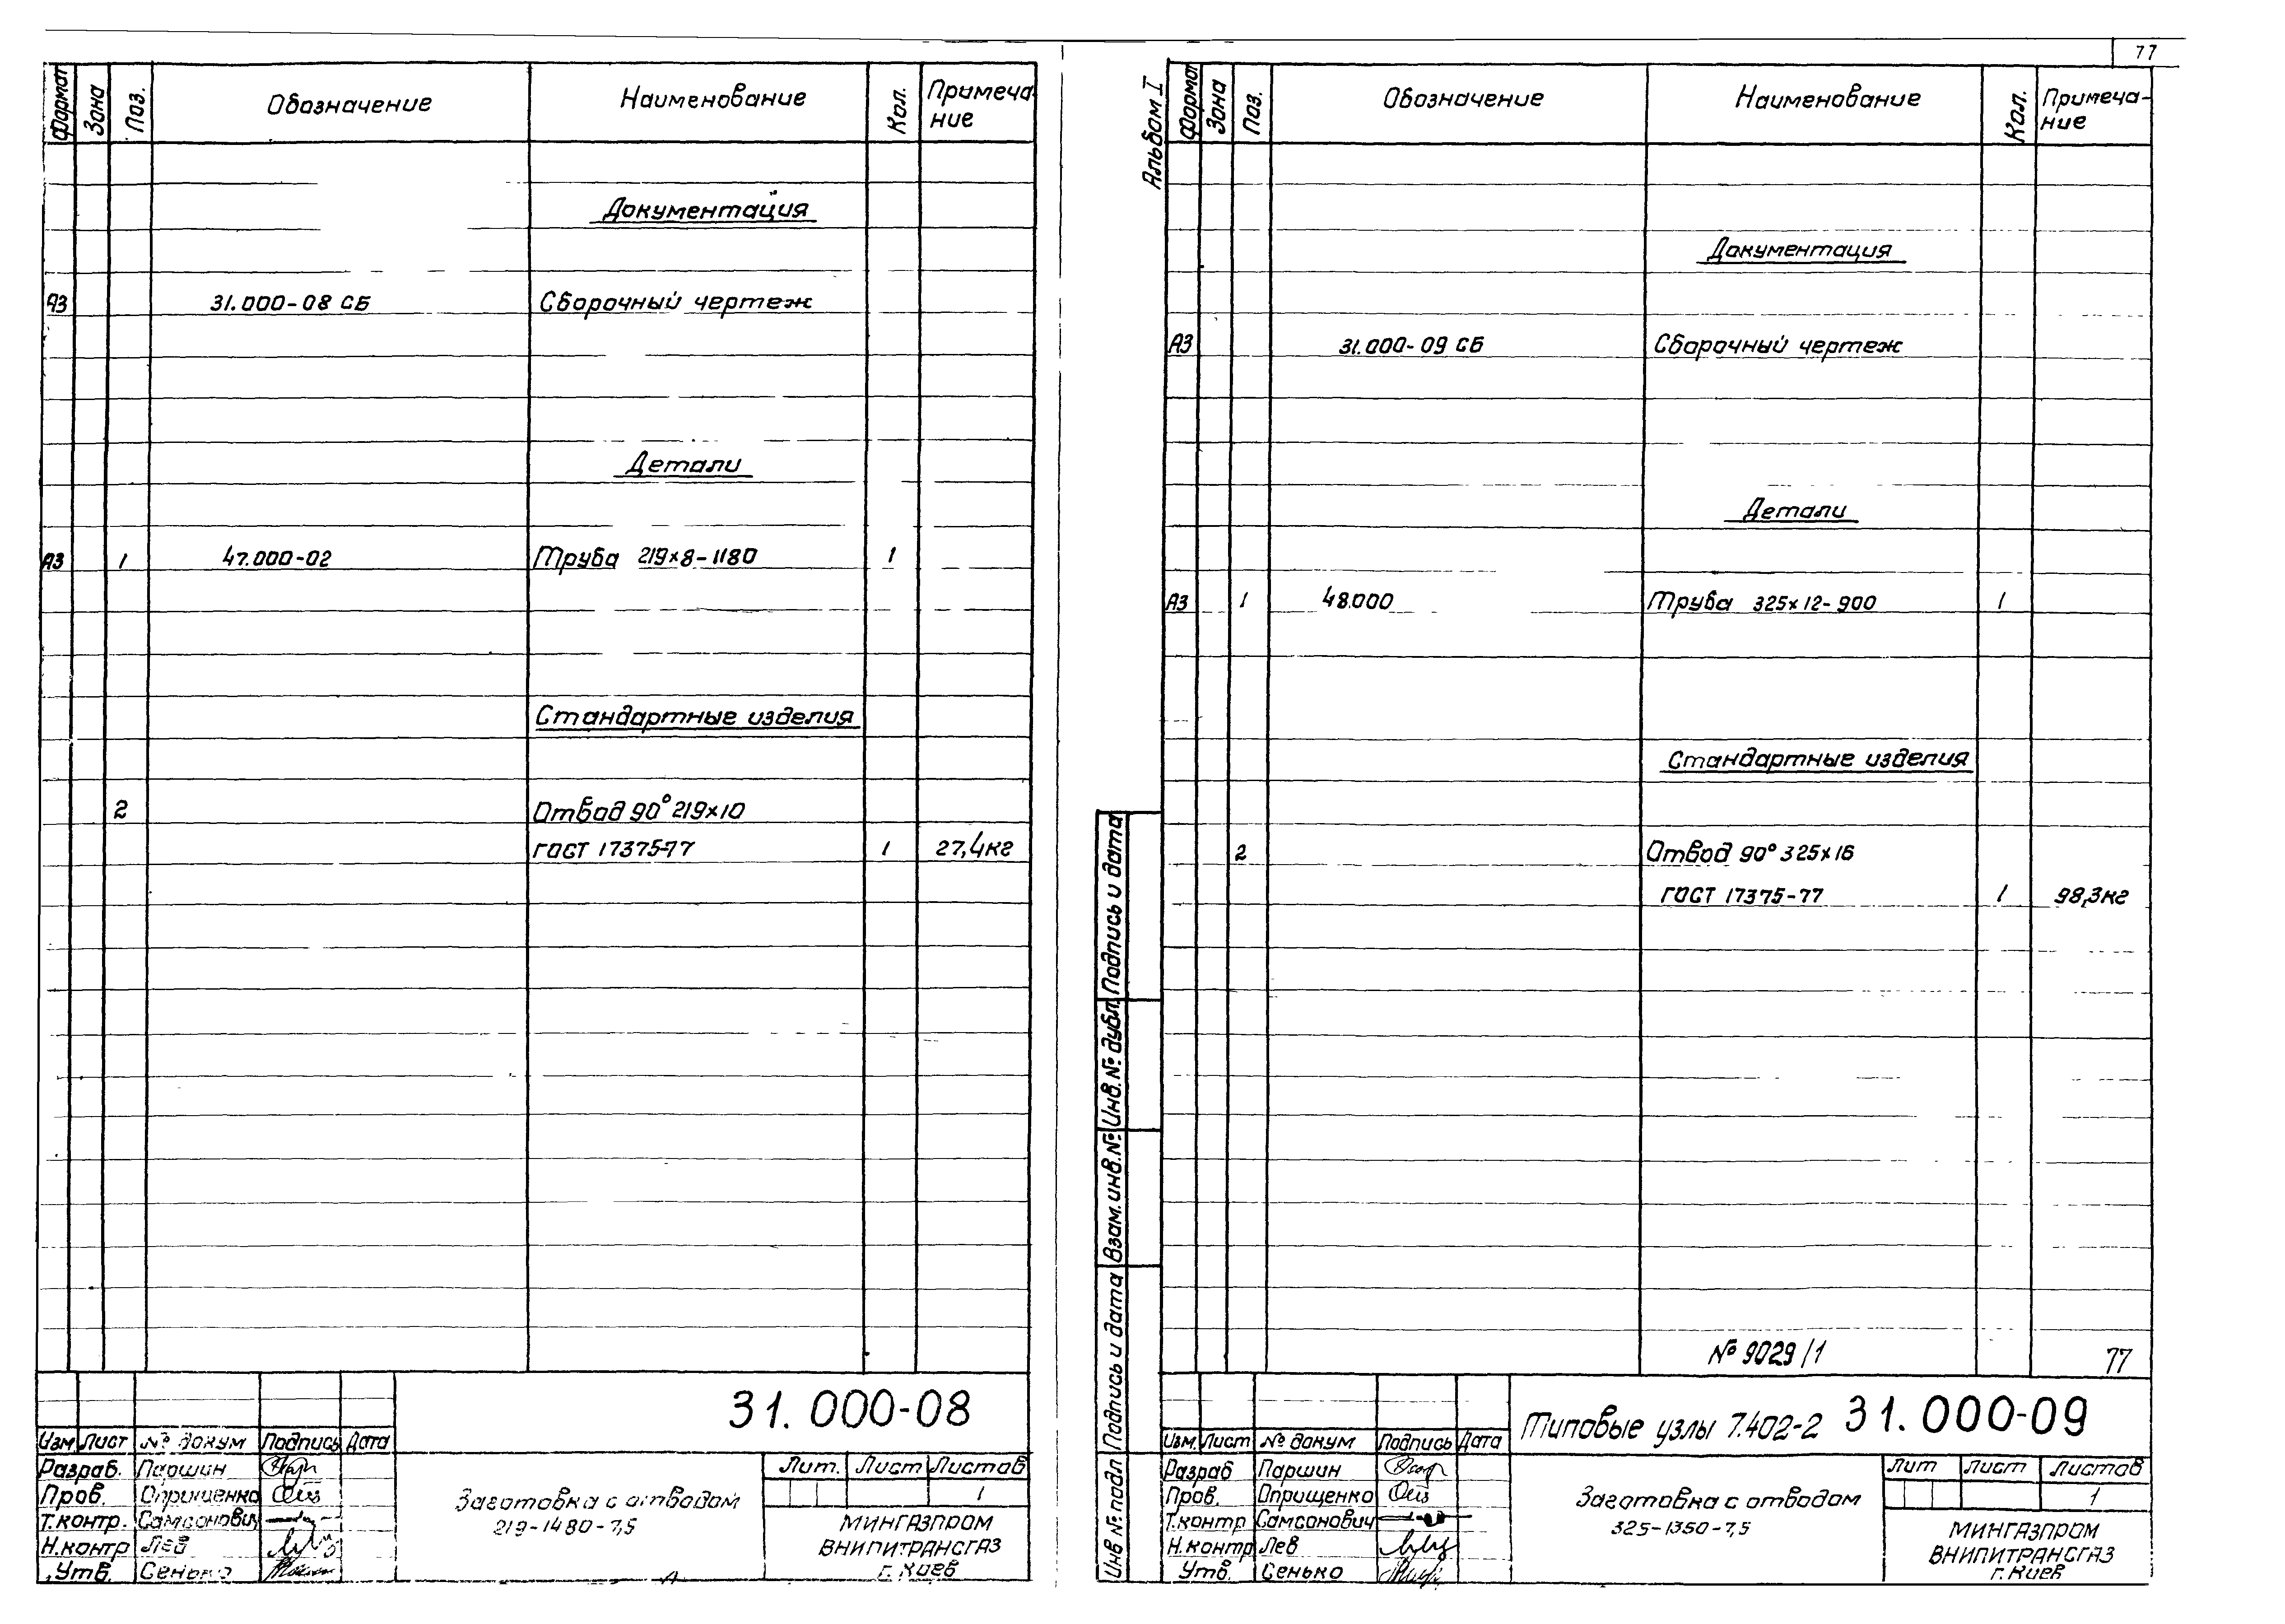 77
Формат Зона Поз. Обозначение Наименование Кол. Примеча
ние
Документация
А3 31.000-08 СБ Сборочный чертеж
Детали
А3 1 47.000-02 Труба 219х8-1180 1
Стандартные изделия
2 Отвод 90° 219х10
ГОСТ 17375-77 1 27,4кг
31.000-08
Изм Лист № докум Подпись Дата
Разраб. Паршин
Пров. Оприщенко
Т.контр. Самсонович
Н.контр Лев
Утв. Сенько
Заготовка с отводом
219-1480-7,5
Лит. Лист Листов
1
МИНГАЗПРОМ
ВНИПИТРАНСГАЗ
г. Киев
Альбом I
Формат Зона Поз. Обозначение Наименование Кол. Примеча-
ние
Документация
А3 31.000-09 СБ Сборочный чертеж
Детали
А3 1 48.000 Труба 325х12-900 1
Стандартные изделия
2 Отвод 90° 325х16
ГОСТ 17375-77 1 98,3кг
№ 9029/1 77
Инв № подл Подпись и дата Взам. инв.№ Инв.№ дубл. Подпись и дата
Типовые узлы 7.402-2 31.000-09
Изм. Лист № докум Подпись Дата
Разраб Паршин
Пров. Оприщенко
Т.контр Самсонович
Н.контр Лев
Утв. Сенько
Заготовка с отводом
325-1350-7,5
Лит Лист Листов
1
МИНГАЗПРОМ
ВНИПИТРАНСГАЗ
г. Киев